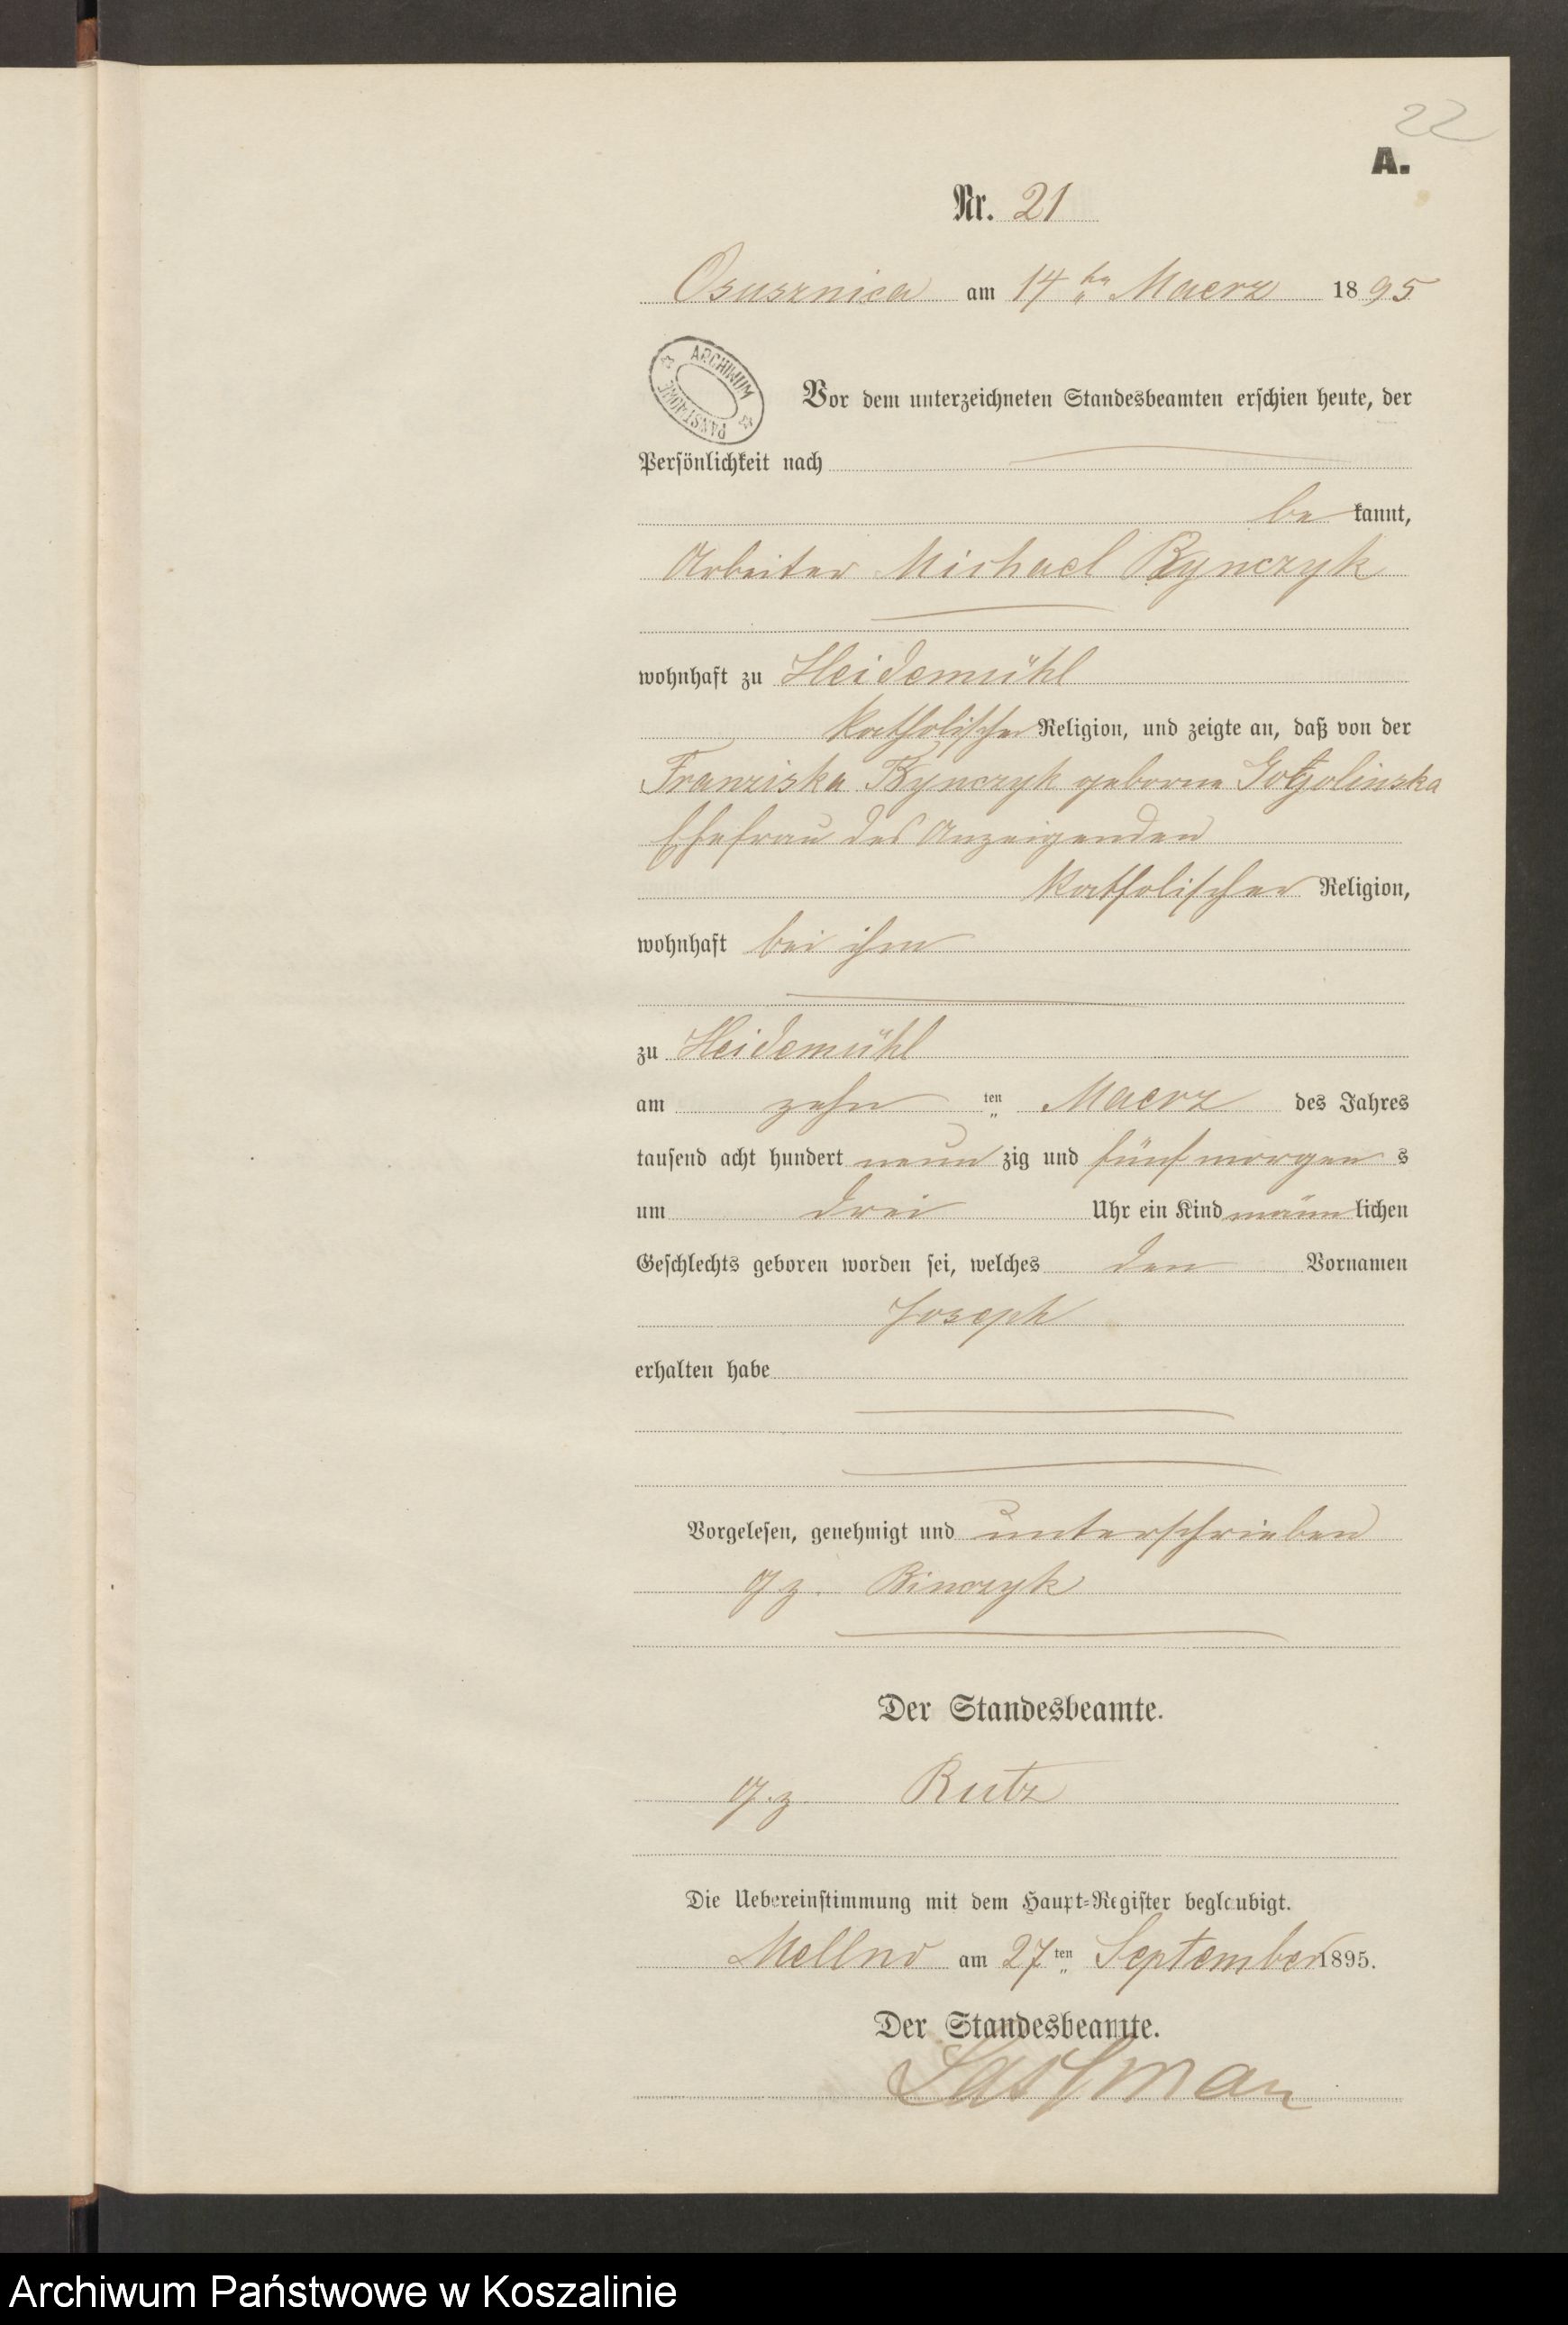 22
A.
Nr. 21
Osusznica am 14 ten Maerz 1895
ARCHIWUM PAŃSTWOWE
Vor dem unterzeichneten Standesbeamten erschien heute, der
Persönlichkeit nach
be kannt,
Arbeiter Michael Rynczyk
wohnhaft zu Heidemühl
katholischer Religion, und zeigte an, daß von der
Franziska Rynczyk geborne
Ehefrau des Anzeigenden
katholischer Religion,
wohnhaft bei ihm
zu Heidemühl
am zehn ten Maerz des Jahres
tausend acht hundert neun zig und fünf morgen s
um drei Uhr ein Kind männ lichen
Geschlechts geboren worden sei, welches den Vornamen
Joseph
erhalten habe
Vorgelesen, genehmigt und unterschrieben
gz. Rinczyk
Der Standesbeamte.
gz. Rutz
Die Uebereinstimmung mit dem Haupt-Register beglaubigt.
Mellno am 27 ten September 1895.
Der Standesbeamte.
Archiwum Państwowe w Koszalinie